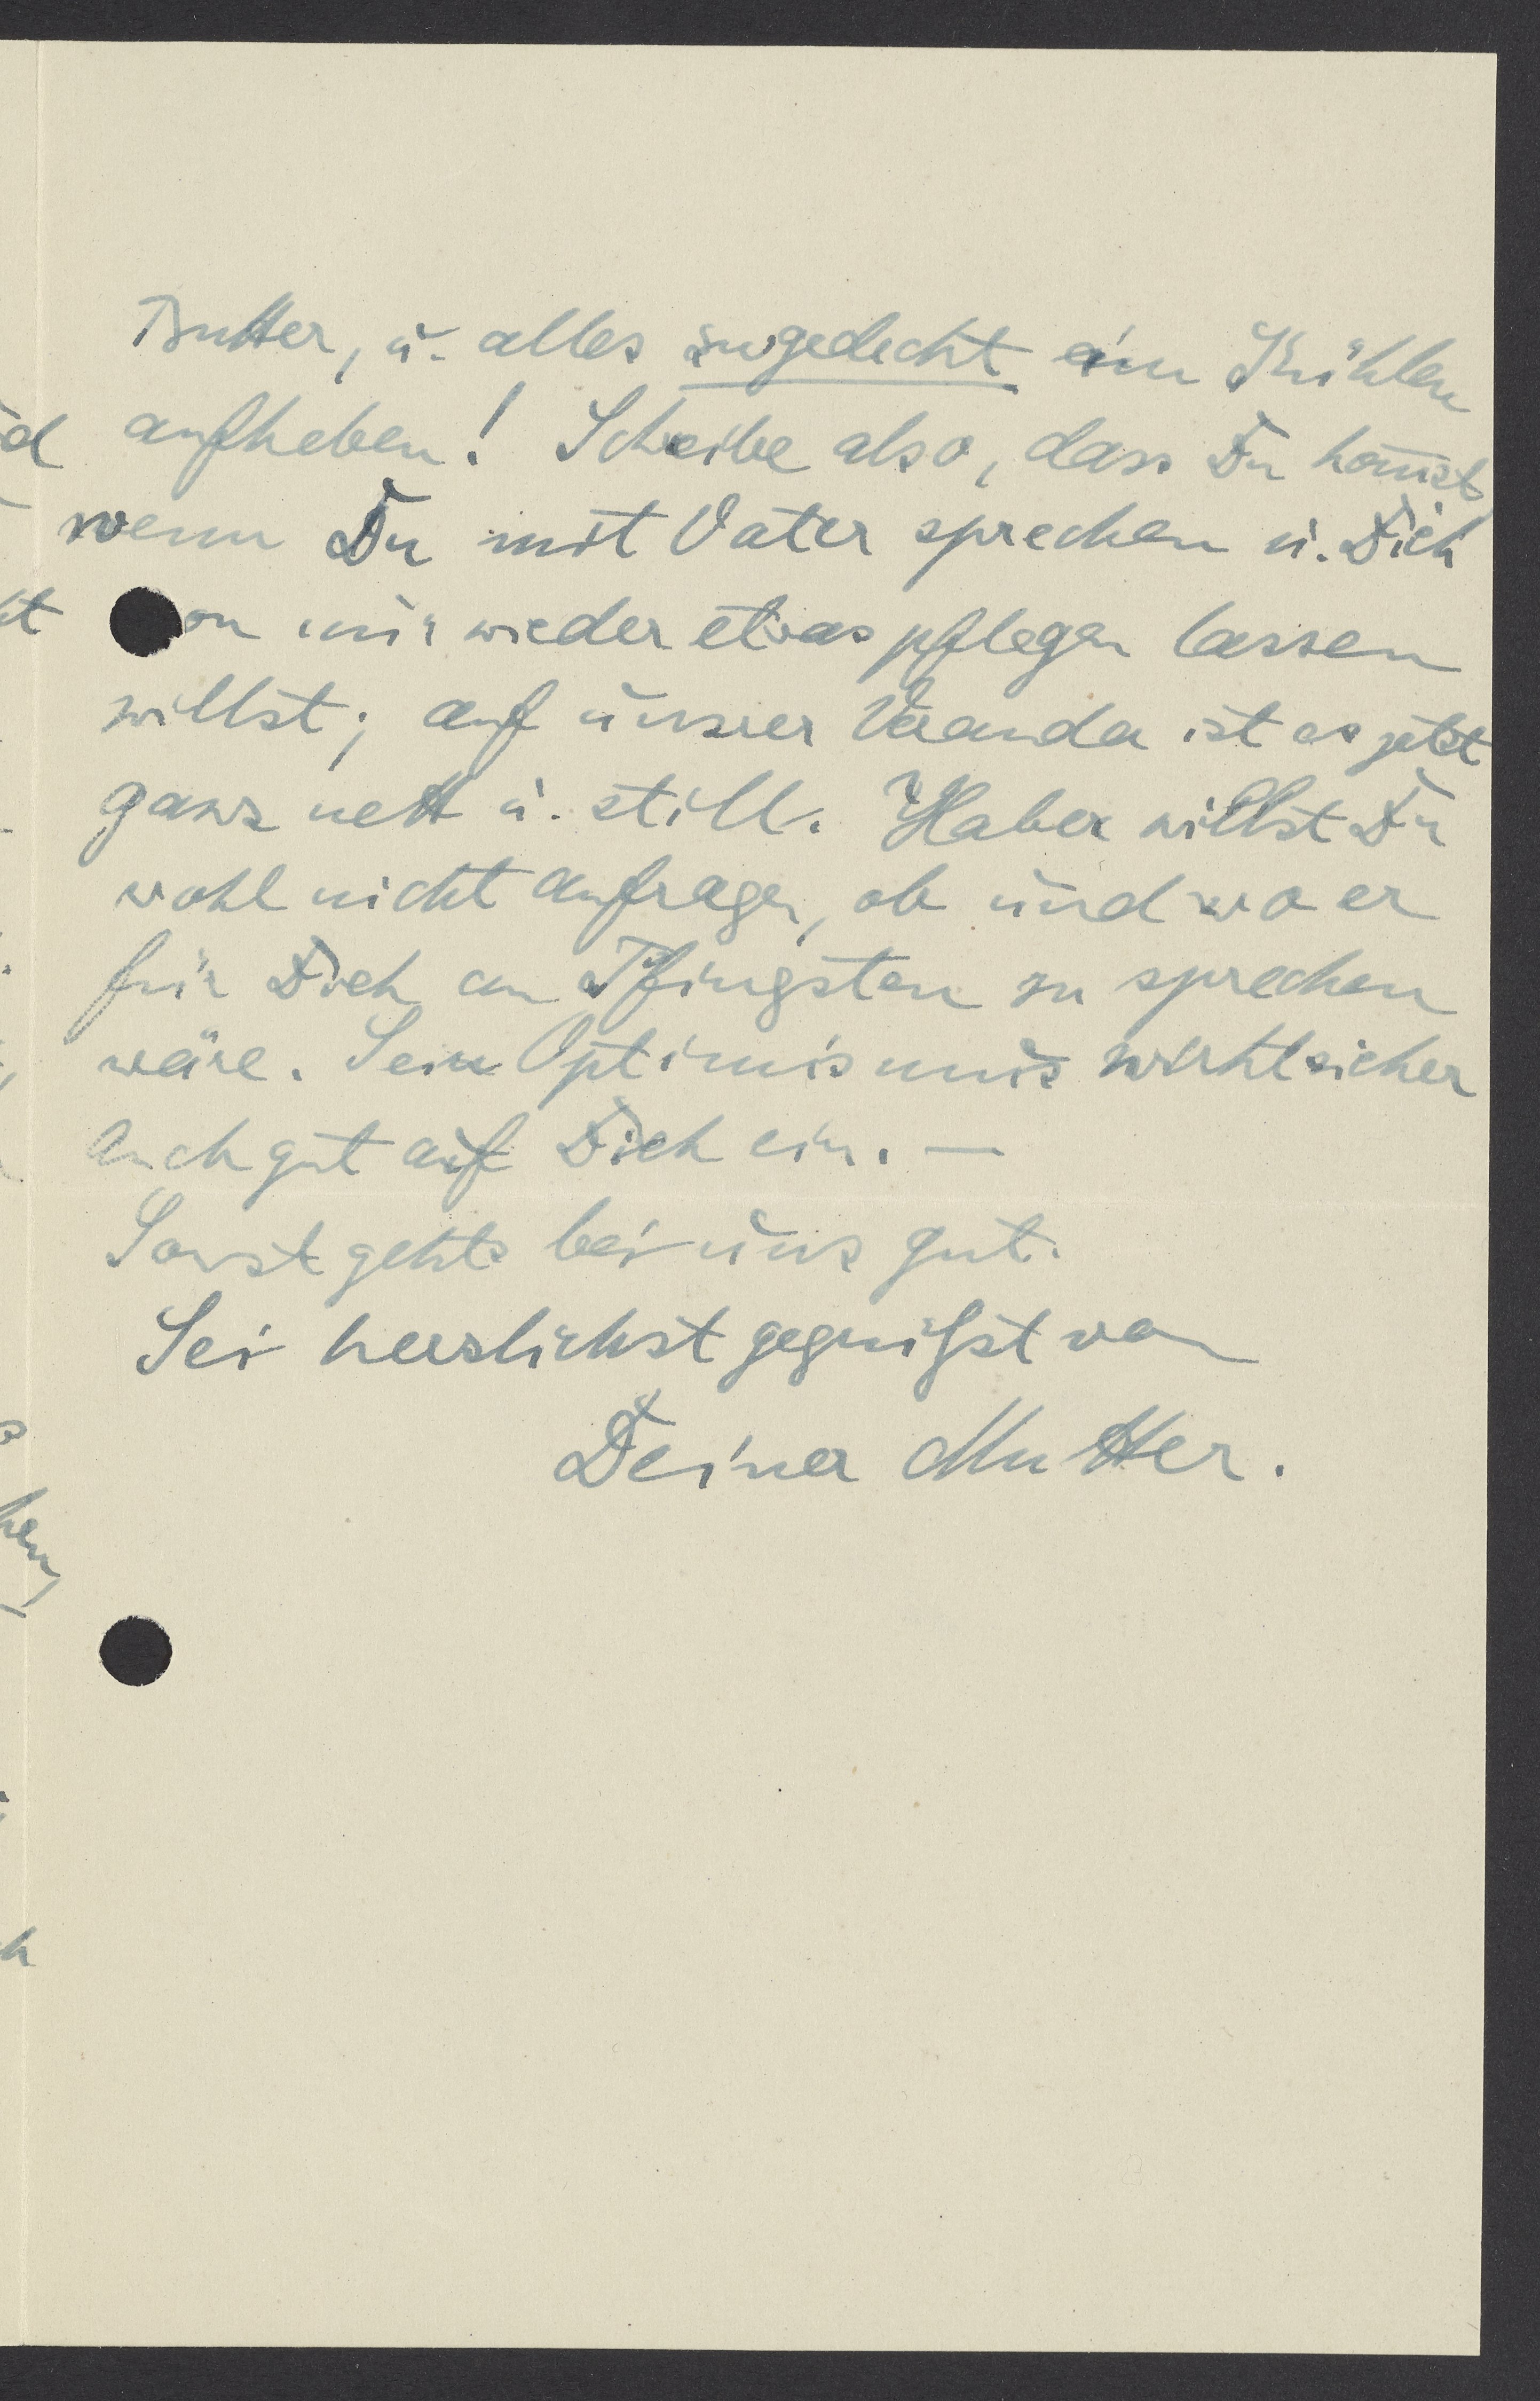 Butter, u. alles zugedeckt im Kühlen
aufheben! Schreibe also, dass Du kom̄st
wenn Du mit Vater sprechen u. Dich
von mir wieder etwas pflegen lassen
willst; auf unsrer Veranda ist es jetzt
ganz nett u. still. Haber willst Du
wohl nicht anfragen, ob und wo er
für Dich an Pfingsten zu sprechen
wäre. Sein Optimismus wirkt sicher
auch gut auf Dich ein. —
Sonst gehts bei uns gut.
Sei herzlichst gegrüßt von
Deiner Mutter.